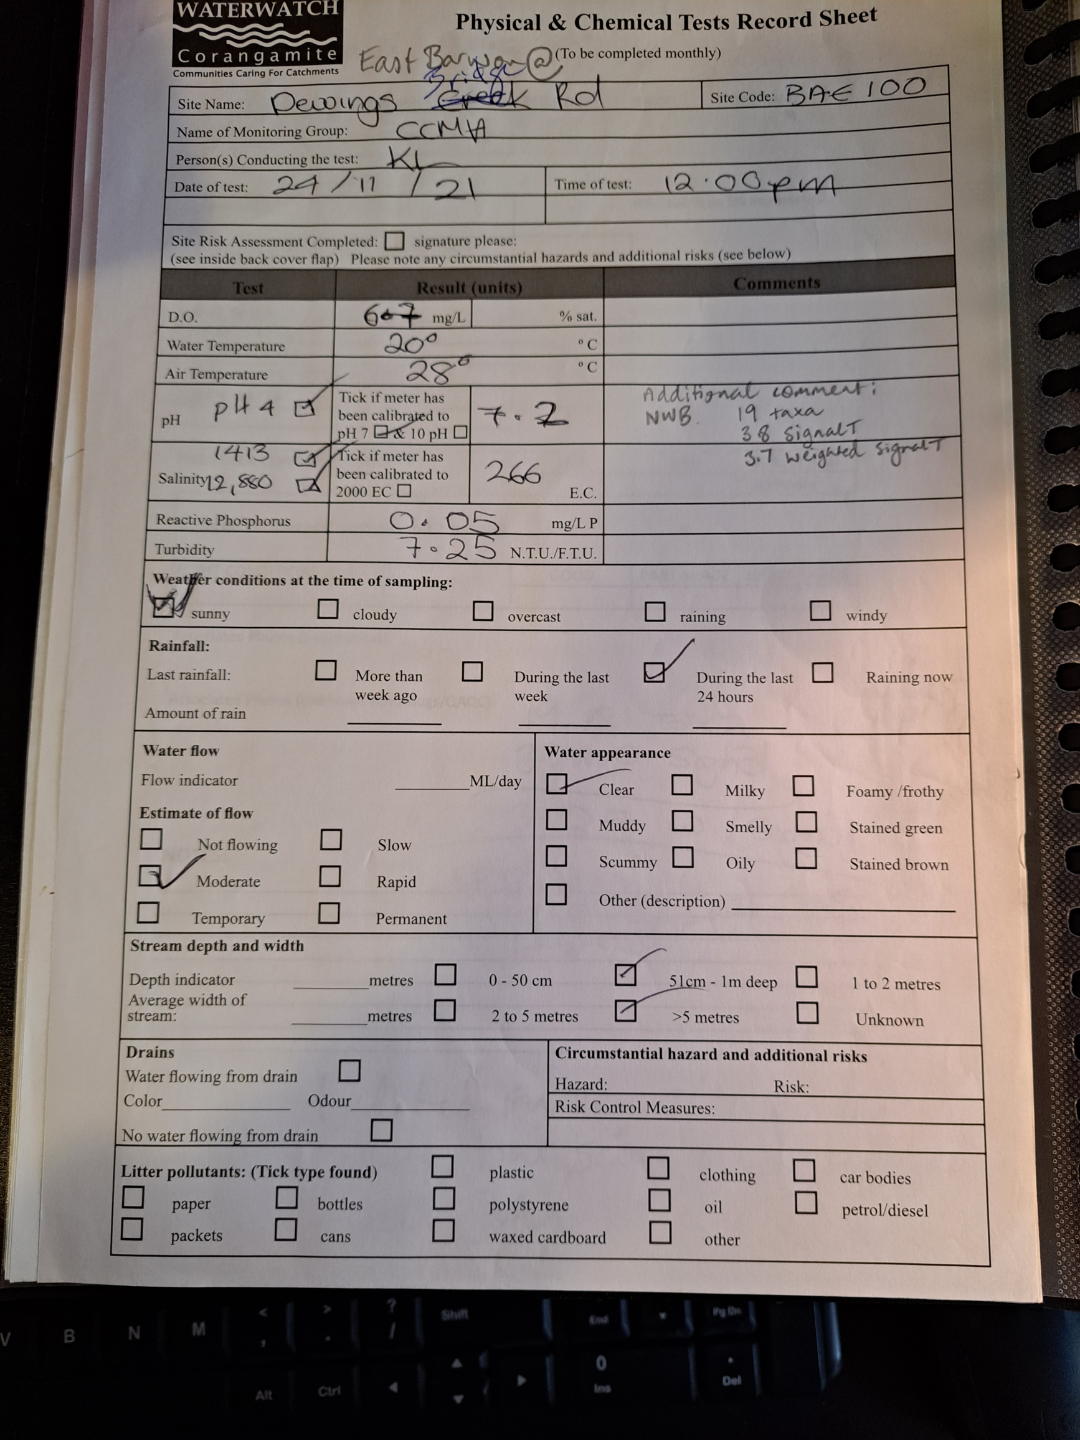 WATERWATCH
Corangamite
Communities Caring For Catchments
Physical & Chemical Tests Record Sheet
(To be completed monthly)
East Barwon @
Bridge
Site Name: Dewings Creek Rd Site Code: BAE 100
Name of Monitoring Group: CCMA
Person(s) Conducting the test: KL
Date of test: 24/11/21 Time of test: 12.00pm
Site Risk Assessment Completed: signature please:
(see inside back cover flap) Please note any circumstantial hazards and additional risks (see below)
Test Result (units) Comments
D.O. 6.7 mg/L % sat.
Water Temperature 20° °C
Air Temperature 28° °C
pH pH 4 Tick if meter has been calibrated to pH 7 & 10 pH 7.2
Additional comment:
NWB 19 taxa
3.8 SignalT
3.7 weighted SignalT
1413
Salinity 12,880 Tick if meter has been calibrated to 2000 EC 266 E.C.
Reactive Phosphorus 0.05 mg/L P
Turbidity 7.25 N.T.U./F.T.U.
Weather conditions at the time of sampling:
sunny cloudy overcast raining windy
Rainfall:
Last rainfall: More than week ago During the last week During the last 24 hours Raining now
Amount of rain
Water flow
Flow indicator ML/day
Estimate of flow
Not flowing Slow
Moderate Rapid
Temporary Permanent
Water appearance
Clear Milky Foamy /frothy
Muddy Smelly Stained green
Scummy Oily Stained brown
Other (description)
Stream depth and width
Depth indicator metres 0 - 50 cm 51cm - 1m deep 1 to 2 metres
Average width of
stream: metres 2 to 5 metres >5 metres Unknown
Drains
Water flowing from drain
Color Odour
No water flowing from drain
Circumstantial hazard and additional risks
Hazard: Risk:
Risk Control Measures:
Litter pollutants: (Tick type found) plastic clothing car bodies
paper bottles polystyrene oil petrol/diesel
packets cans waxed cardboard other
V B N M < , > . ? / Shift End Pg Dn
Alt Ctrl 0 Ins . Del